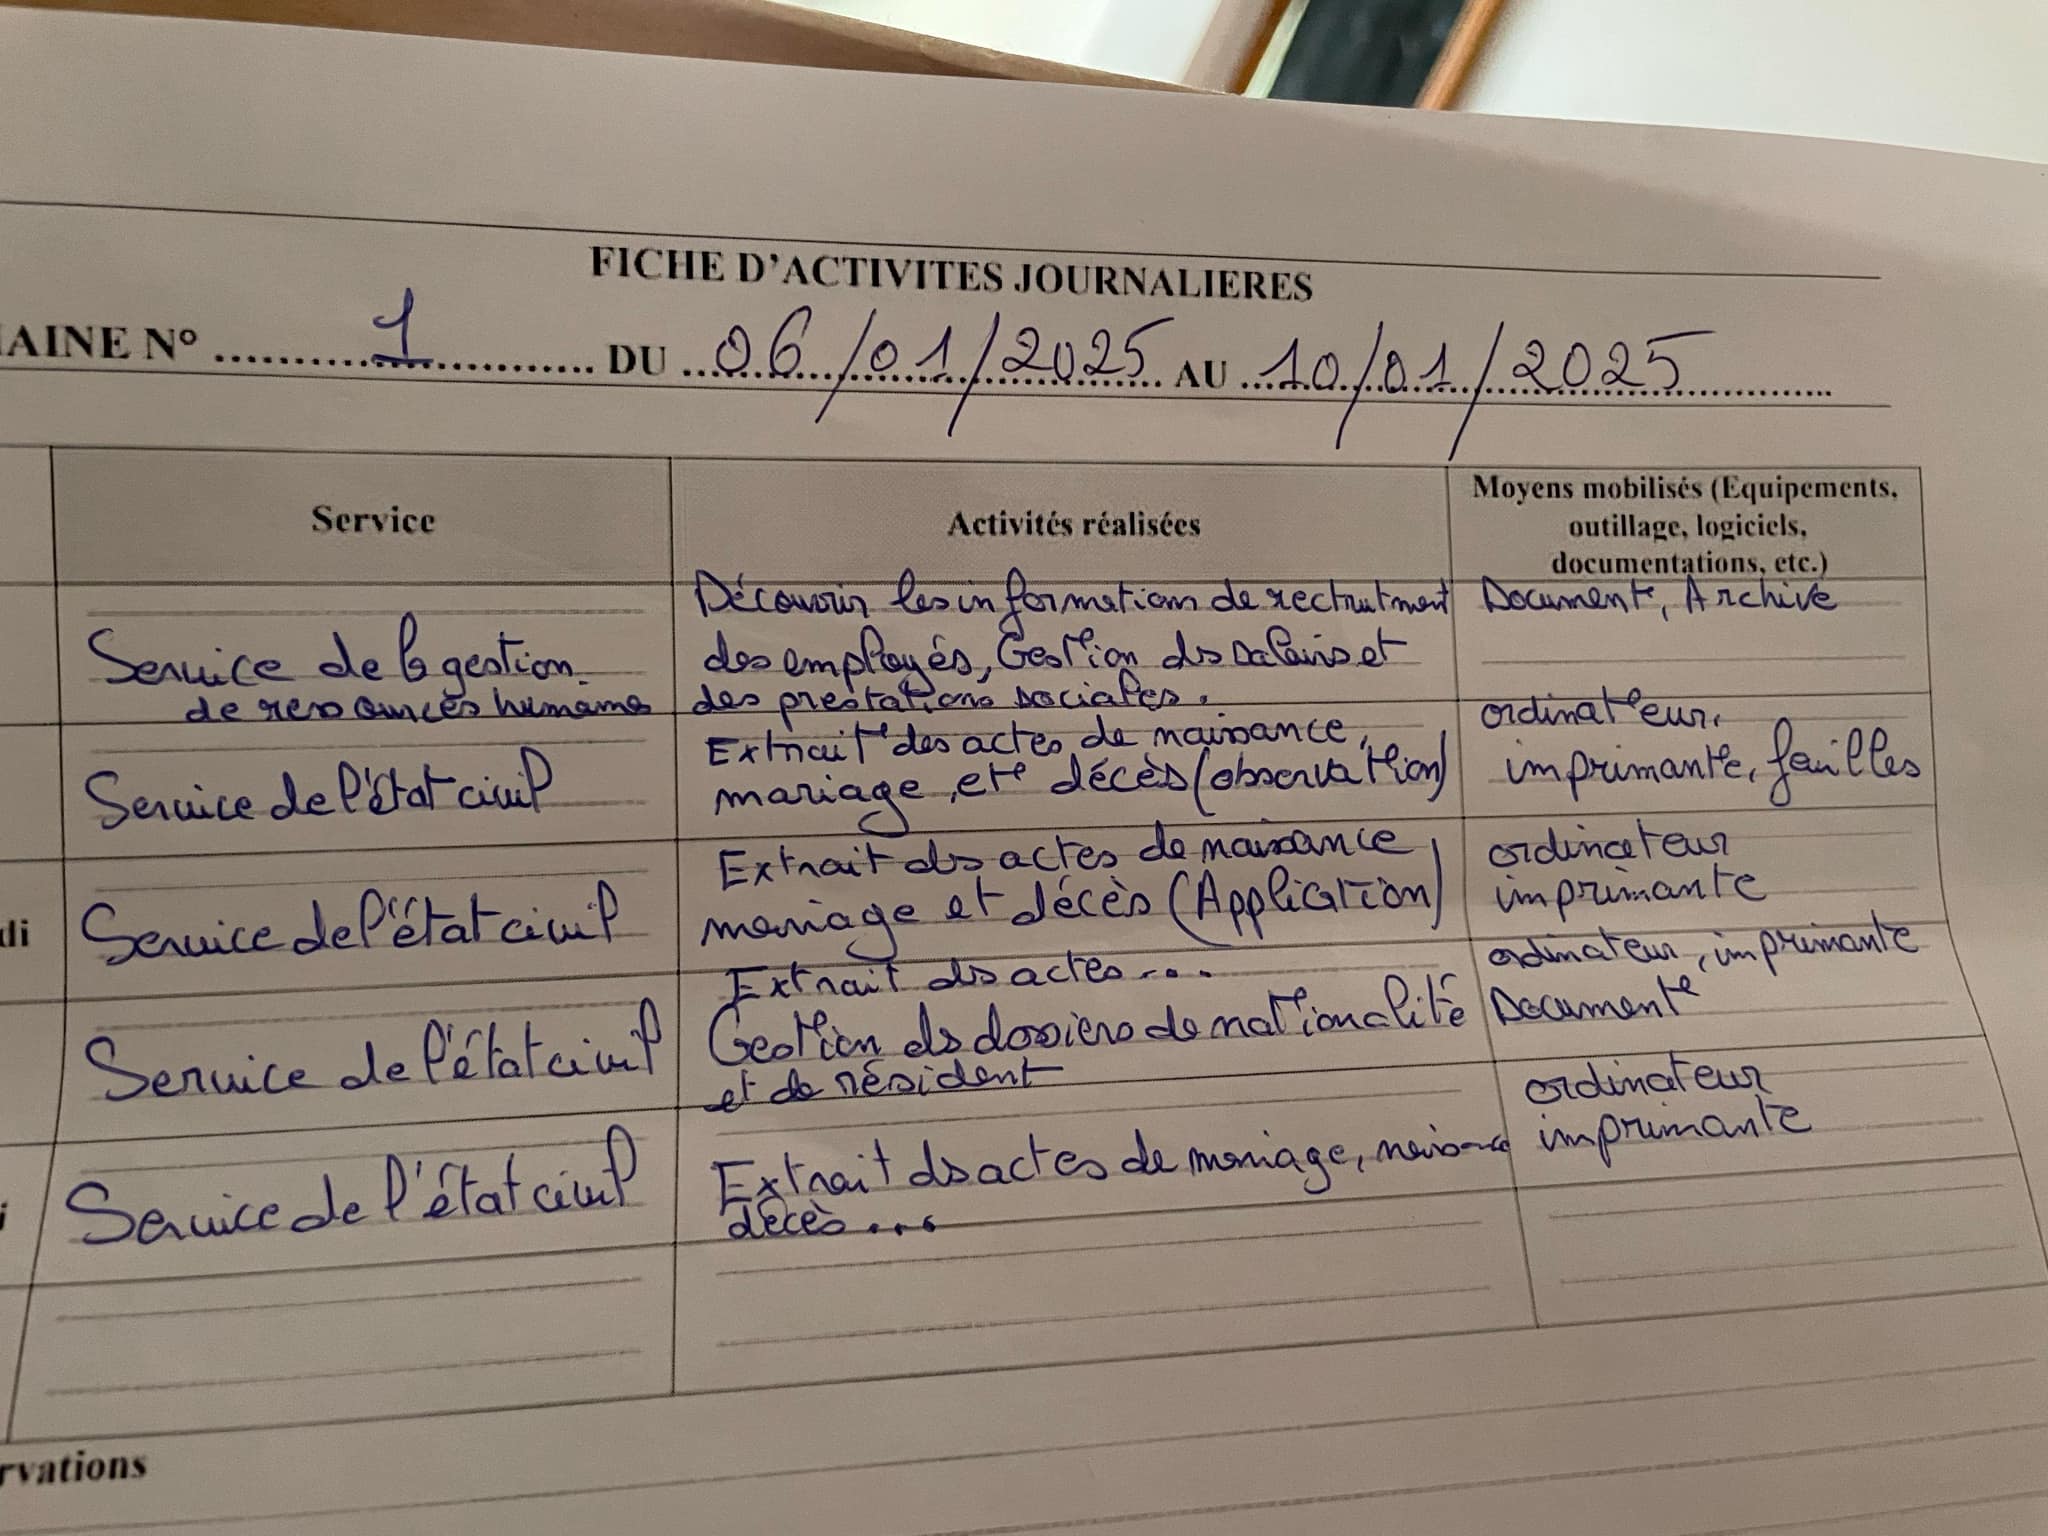 FICHE D'ACTIVITES JOURNALIERES
AINE N° 1 DU 06/01/2025 AU 10/01/2025
Service
Activités réalisées
Moyens mobilisés (Equipements,
outillage, logiciels,
documentations, etc.)
Service de la gestion
de ressources humaines
Découvrir les informations de rectrutment
des employés, Gestion des salaires et
des prestations sociales.
Document, Archive
Service de l'état civil
Extrait des actes de naissance,
mariage, et décès (observation)
ordinateur,
imprimante, feuilles
di
Service de l'état civil
Extrait des actes de naissance,
mariage et décès (Application)
ordinateur
imprimante
Service de l'état civil
Extrait des actes...
Gestion des dossiers de nationalité
et de résident
ordinateur, imprimante
Document
i
Service de l'état civil
Extrait des actes de mariage, naissance
décès...
ordinateur
imprimante
rvations